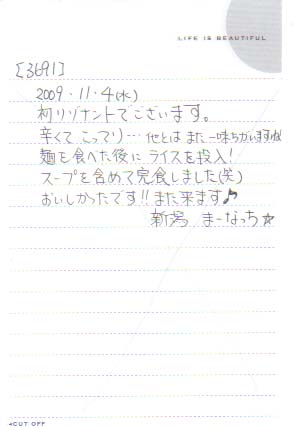 LIFE IS BEAUTIFUL
[3691]
2009・11・4(水)
初リゾナントでございます。
辛くて こってり… 他とは また一味ちがいますね
麺を食べた後に ライスを投入!
スープを含めて完食しました(笑)
おいしかったです!!また来ます♪
新潟 まーなっち☆
◂CUT OFF